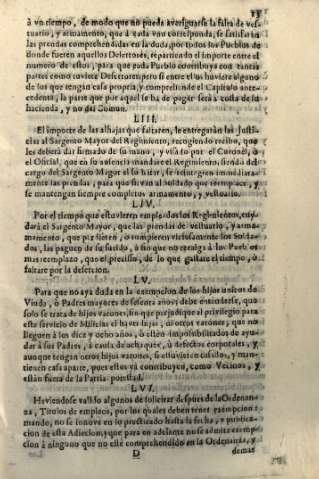 13
à vn tiempo, de modo que no pueda averiguarse la falta de ves-
tuario, y armamento, que à cada vno corresponda, se satisfaràn
las prendas comprehendidas en la duda, por todos los Pueblos de
donde fueren aquellos Desertores, repartiendo el importe entre el
numero de estos, para que cada Pueblo contribuya con tantas
partes como tuviere Desertores; pero si entre ellos huviere alguno
de los que tengan casa propria, y comprehende el Capitulo ante-
cedente, la parte que por aquel se ha de pagar serà à costa de su
hacienda, y no del Comun.
LIII.
El importe de las alhajas que faltaren, le entregaràn las Justi-
cias al Sargento Mayor del Regimiento, recogiendo recibo, que
les deberà dàr firmado de su mano, y visado por el Coronèl, ò
el Oficial, que en su ausencia mandare el Regimiento, siendo del
cargo del Sargento Mayor el hacer, se reintegren immediata-
mente las prendas, para que sirvan al Soldado que reemplace, y
se mantengan siempre completos armamento, y vestuario.
LIV.
Por el tiempo que estuvieren empleados los Regimientos, cuy-
darà el Sargento Mayor, que las prendas de vestuario, y arma-
mento, que perdieren, ò rompieren viciosamente los Solda-
dos, las paguen de su sueldo, ò sin que no recayga à los Pueblos
mas reemplazo, que el preciso, de lo que gastare el tiempo, ò
faltare por la desercion.
LV.
Para que no aya duda en la exempcion de los hijos unicos de
Viuda, ò Padres mayores de sesenta años; debe entenderse, que
solo se trata de hijos varones, sin que perjudique al privilegio para
este servicio de Milicias el haver hijas, ni otros varones, que no
lleguen à los diez y ocho años, ò estèn impossibilitados de ayu-
dar à sus Padres, à causa de achaque, ò defectos corporales, y
aunque tengan otros hijos varones, si estuvieren casados, y man-
tienen casa aparte, pues estos yà constituyen, como Vecinos, y
estàn fuera de la Patria potestad.
LVI.
Haviendose valido algunos de solicitar despues de la Ordenan-
za, Titulos de empleos, por los quales deben tener exempcion:
mando, no se innove en lo practicado hasta la fecha, y publica-
cion de esta Adiccion; y que para en adelante no se admita exemp-
cion à ninguno que no estè comprehendido en la Ordenanza, y
D
demàs